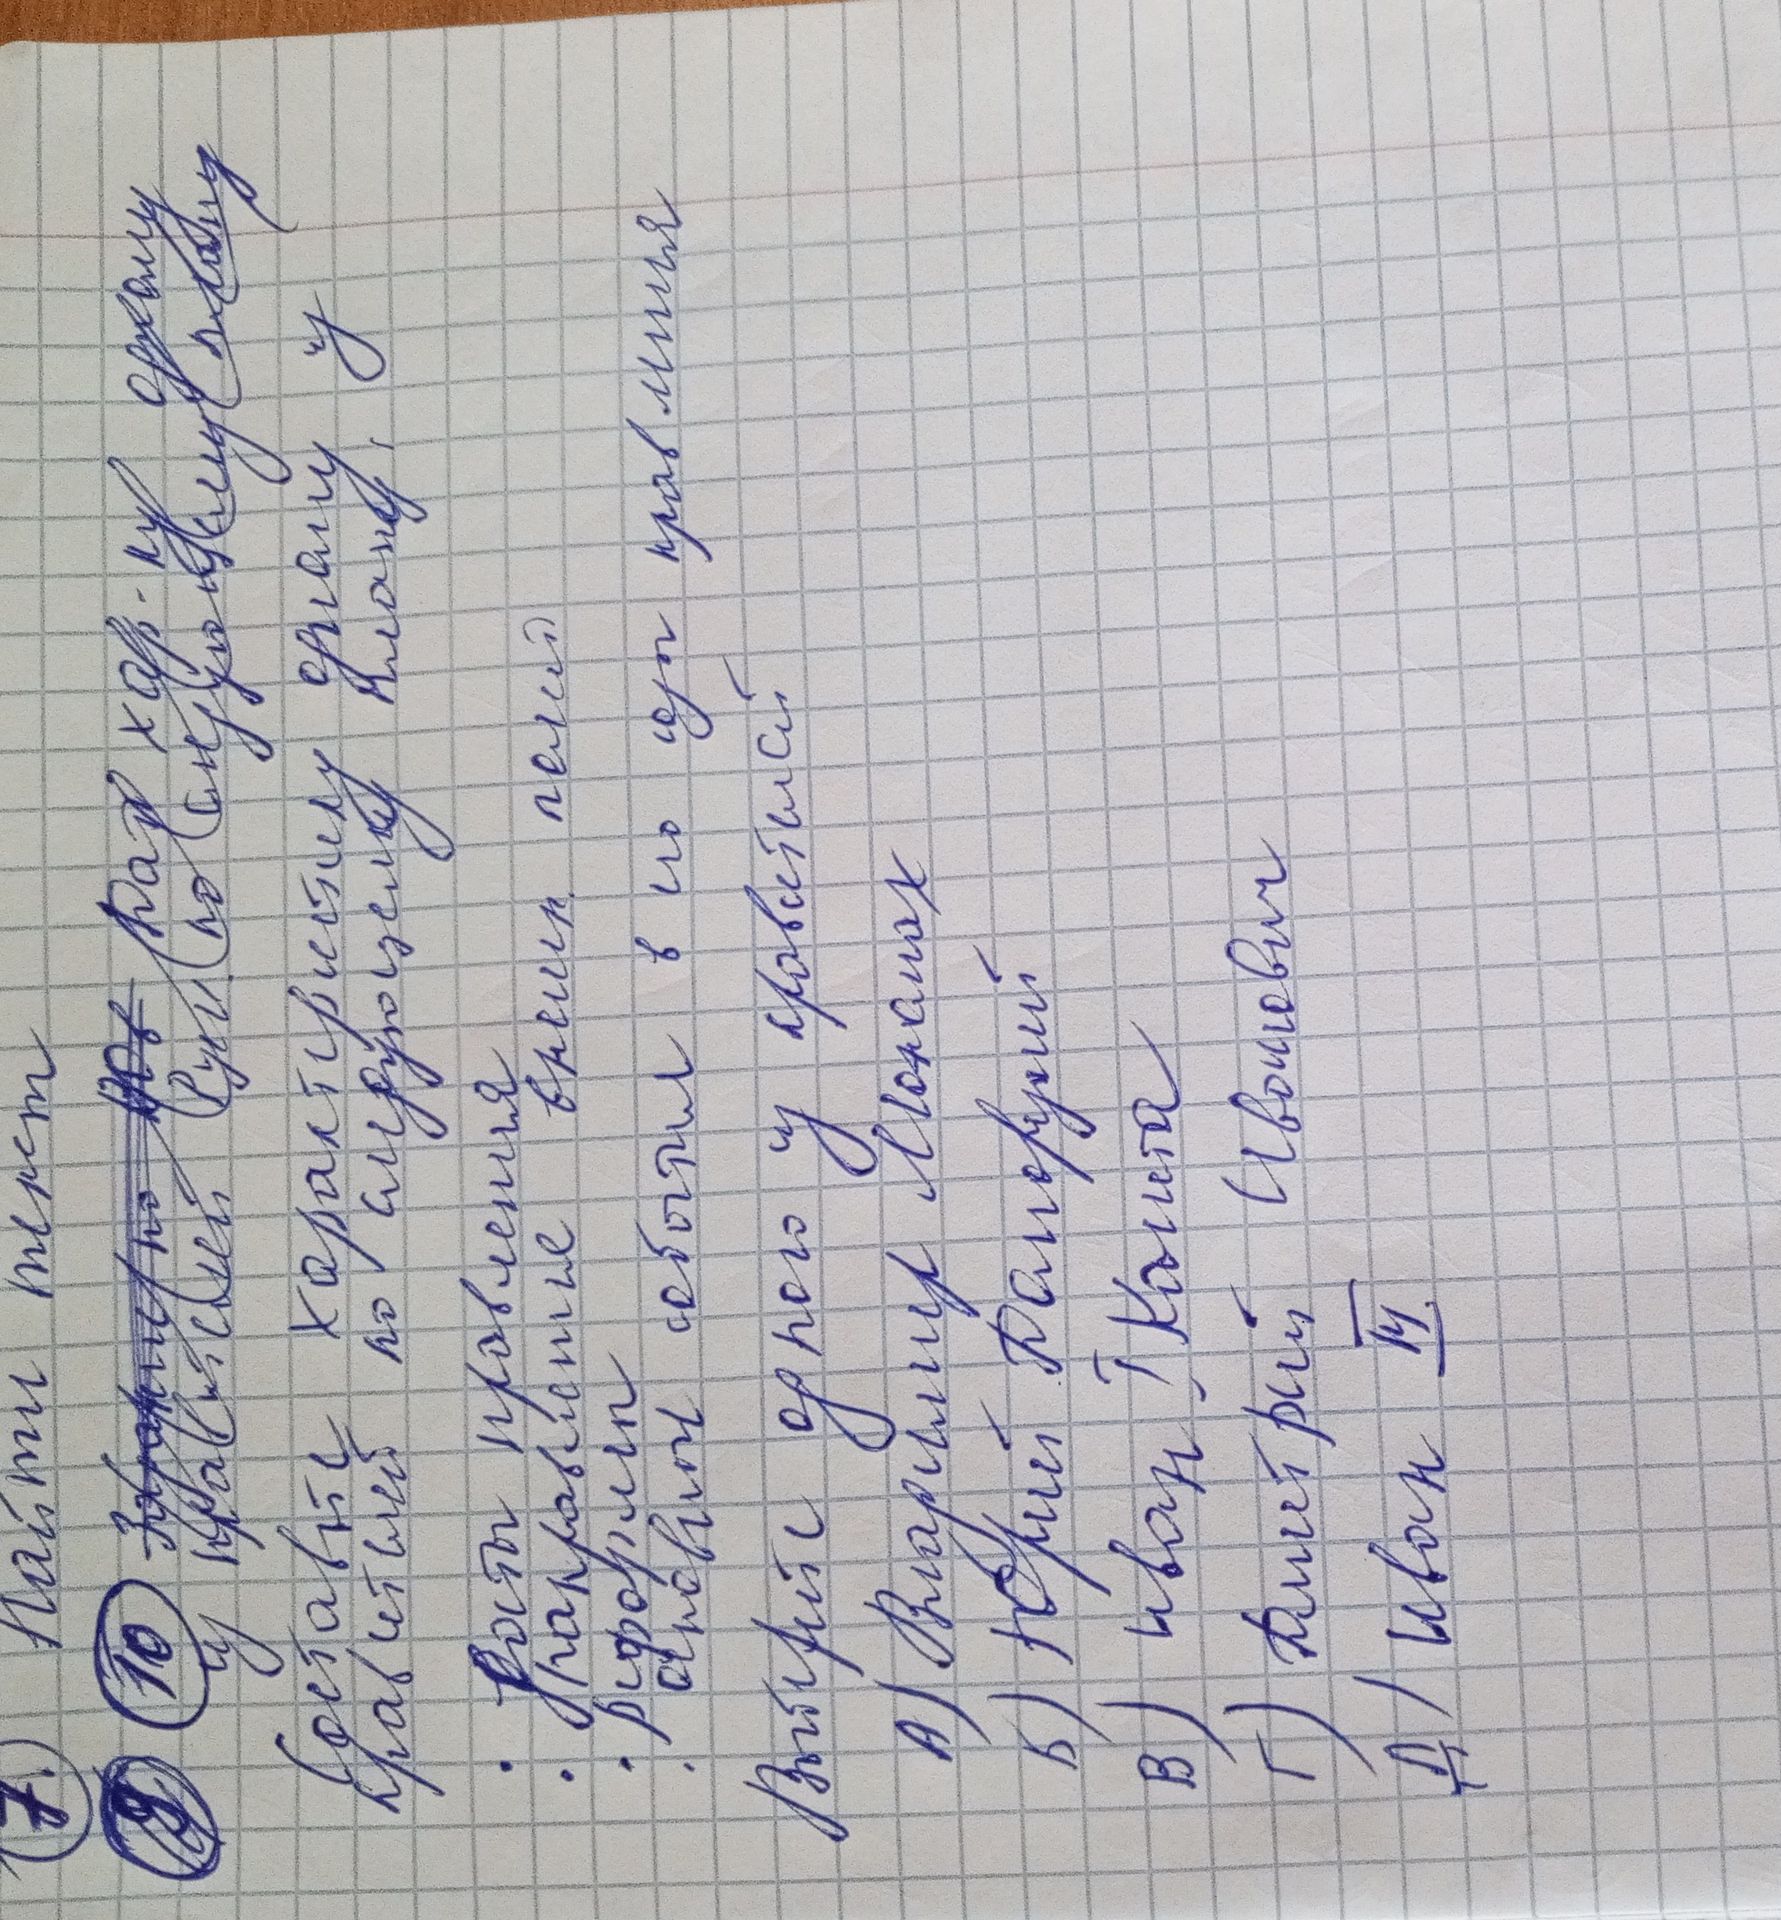 7. Найти текст
9 10 Дат хар-ку одному
из правителей Руси по следующему плану
Составьте характеристику одному из
правителей по следующему плану:
• Даты правления
• направление внешн. полит
• реформы
• основные события в его год правления
Выберите одного из правителей
А) Владимир Мономах
Б) Юрий Долгорукий
В) Иван I Калита
Г) Дмитрий Иванович
Д) Иван IV